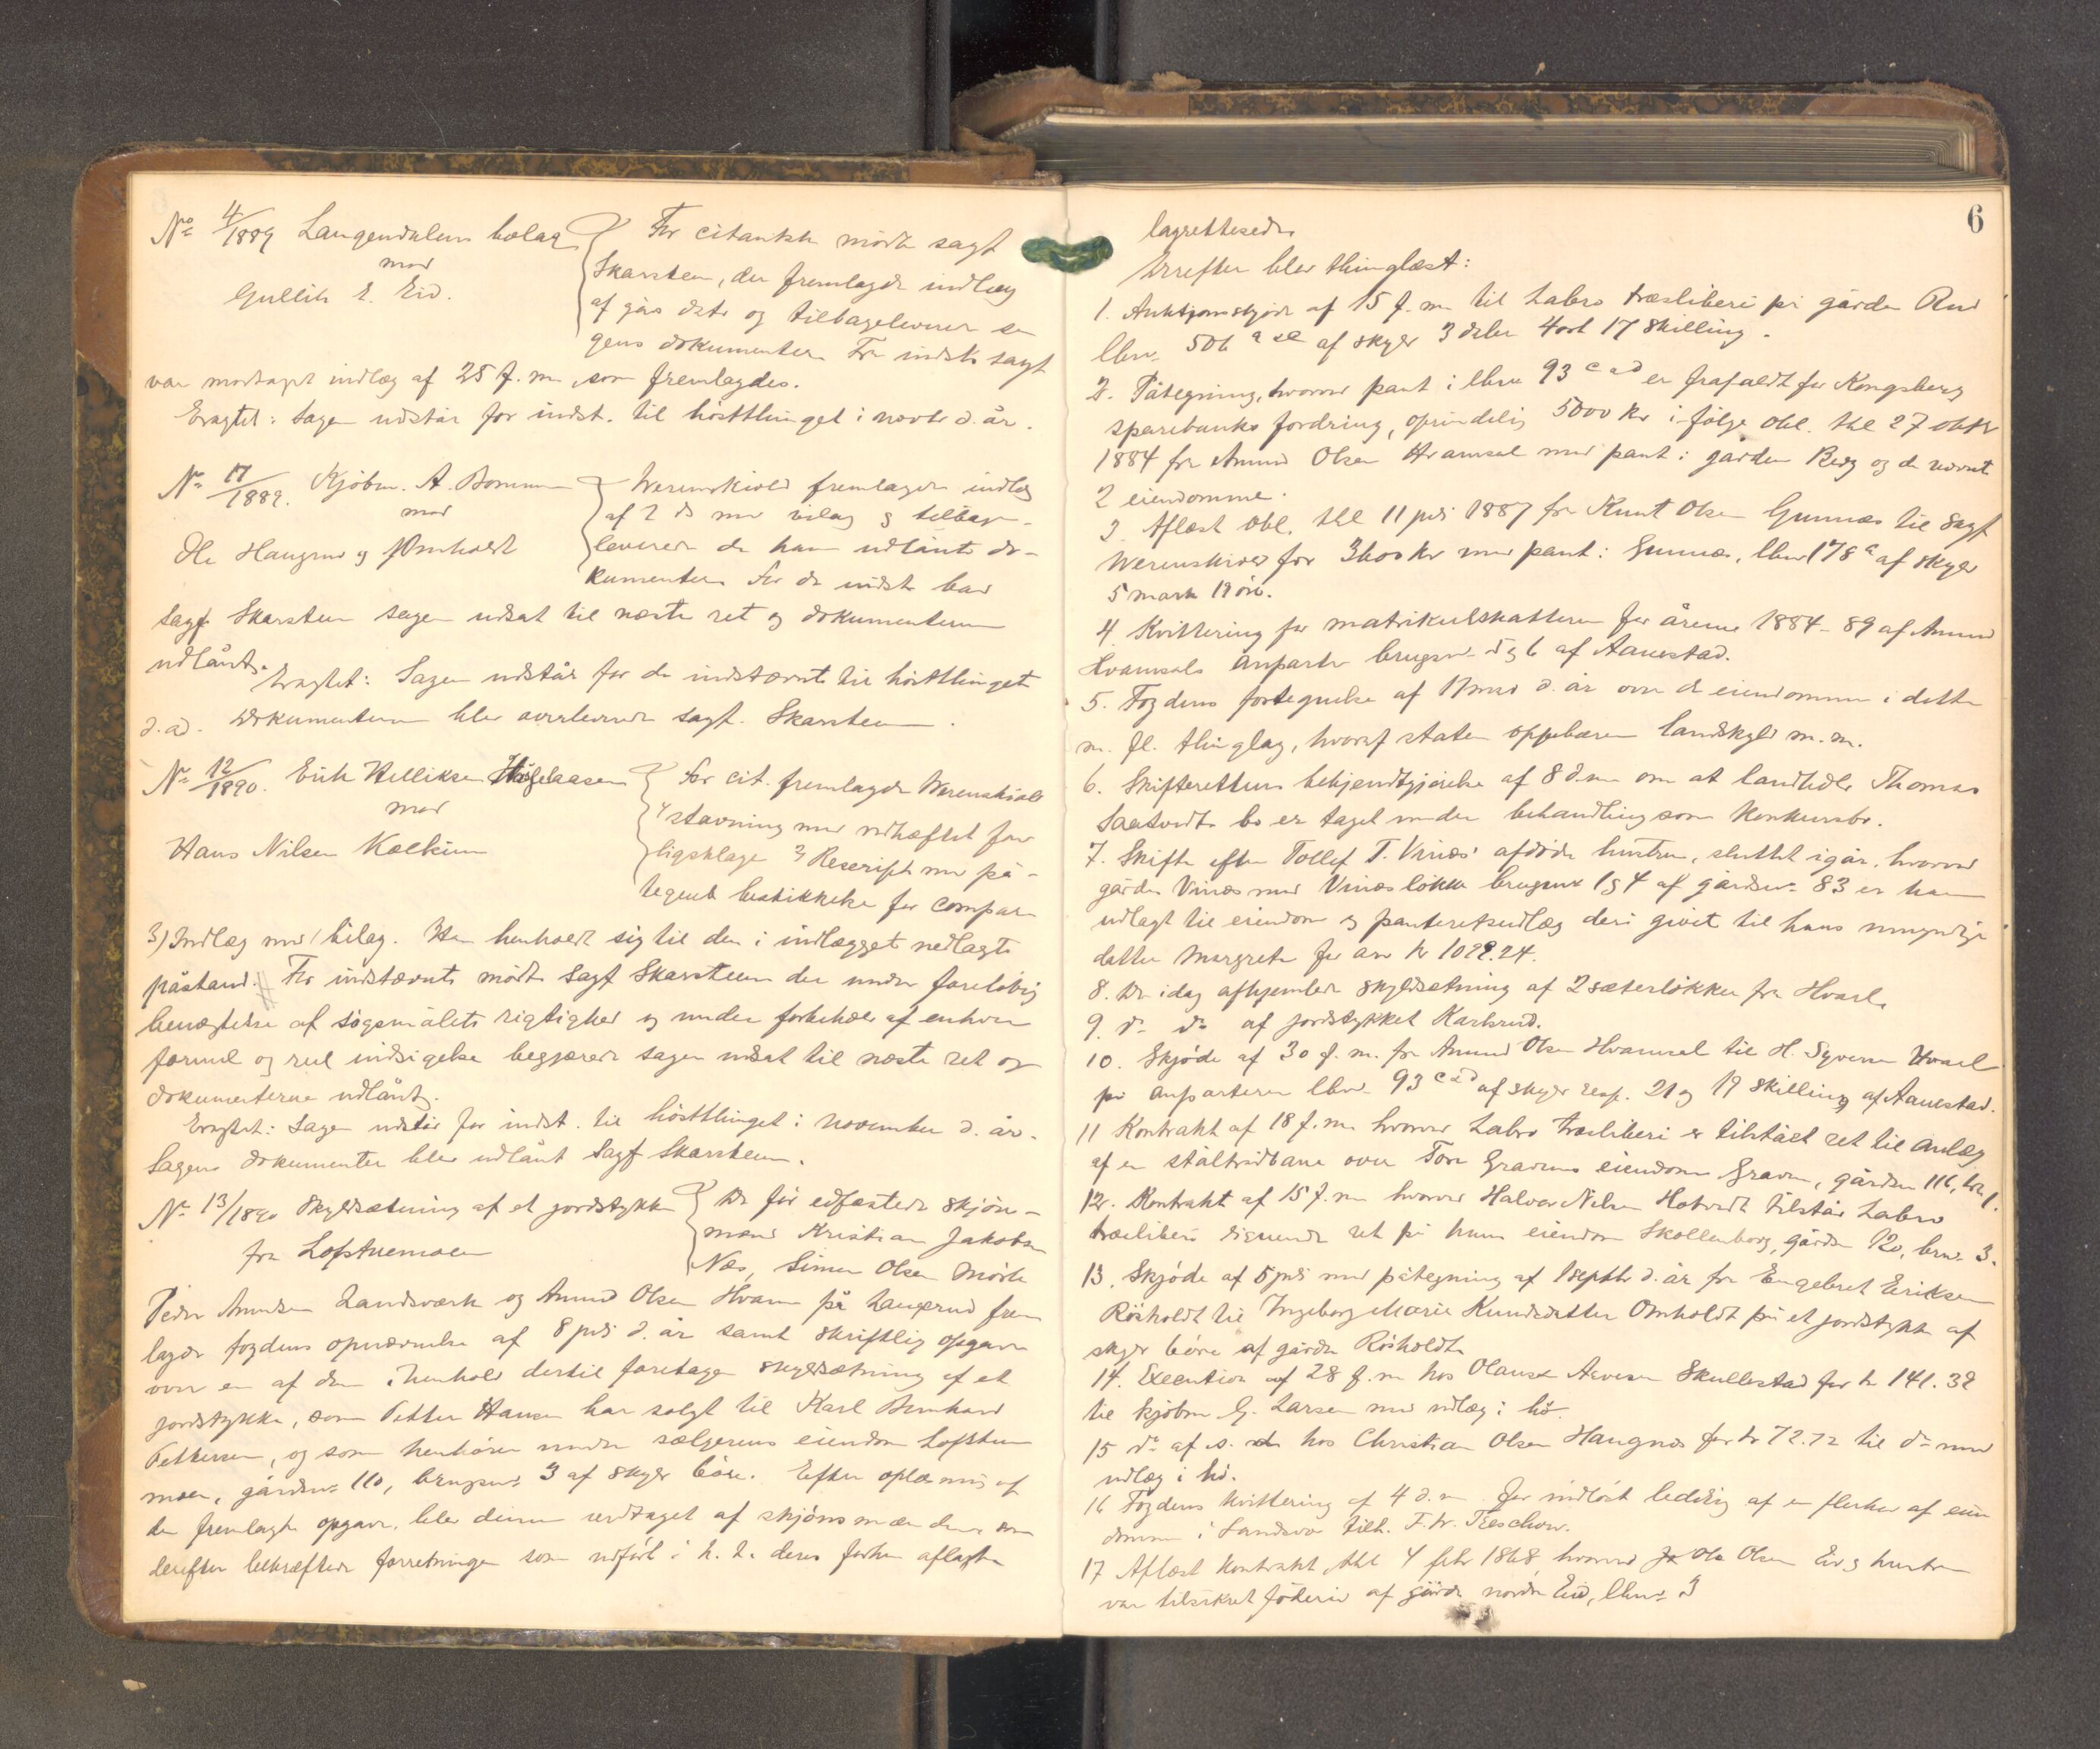 No 4/1889 Laugendalens bolag
mod
Gullik E. Eid.
For citantsk mødte sagf
Skarsteen, der fremlagde indlæg
af går dato og tilbageleverer sa
gens dokumenter. For indstk sagf
var modtaget indlæg af 25 f. m. som fremlagdes.
Eragtet: Sagen udstår for indst. til høstthinget i novbr d. år.
No 17/1889. Kjøbm. A. Bomm
mod
Ole Haugrud og Omholdt
Werenskiold fremlagde indlæg
af 2 ds med bilag og tilbage-
leverede de ham udlånte do-
kumenter. For de indst bad
sagf Skarsteen sagen udsat til næste ret og dokumenterne
udlånt.
Eragtet: Sagen udstår for de indstævnte til høstthinget
d. å. Dokumenterne blev overleveret sagf. Skarsteen.
No 12/1890. Erik Helliksen
mod
Hans Nilsen Kølkin
For cit. fremlagde Werenskiold
1 stævning med vedhæftet for
ligsklage 2 Reskript med på-
tegnet beskikkelse for compar
3) Indlæg med 1 bilag. Han henholdt sig til den i indlægget nedlagte
påstand. For indstævnte mødte Sagf Skarsteen der under foreløbig
benægtelse af søgsmålets rigtighed og under forbehold af enhver
formel og reel indsigelse begjærede sagen udsat til næste ret og
dokumenterne udlånt.
Eragtet: Sagen udstår for indst. til høstthinget i november d. år.
Sagens dokumenter blev udlånt Sagf Skarsteen.
No 13/1890 Skyldsætning af et jordstykke
fra Lofstuemoen
De før edfæstede skjøns-
mænd Kristian Jakobsen
Næs, Simen Olsen Mörk
Peder Amundsen Landsværk og Amund Olsen Hvam på Laugerud frem
lagde fogdens opnævnelse af 8 juli d. år samt skriftlig opgave
over en af dem i henhold dertil foretagen skyldsætning af et
jordstykke, som Petter Hansen har solgt til Karl Bernhard
Pettersen, og som henhører under sælgerens eiendom Lofstue
moen, gårdsno 110, brugsno 3 af skyld 6 øre. Efter oplæsning af
den fremlagte opgave, blev denne vedtaget af skjønsmændene som
derefter bekræftede forretningen som udført i h. t. deres forhen aflagte
6
lagrettesed.
Derefter blev thinglæst:
1. Auktjonsskjøde af 15 f. m. til Labro træsliberi på gården Rud
lbno 506 a af skyld 3 daler 4 ort 17 skilling.
2. Påtegning, hvorved pant i lbno 93 c & d er frafaldt for Kongsberg
sparebanks fordring, oprindelig 5000 kr ifølge obl. thl 27 oktbr
1884 fra Amund Olsen Hvamsal med pant i gården Berg og de nævnte
2 eiendomme.
3. Aflæst obl. thl 11 juli 1887 fra Knut Olsen Gunnæs til Sagf
Werenskiold for 3600 kr med pant i Gunnæs, lbno 178 a af skyld
5 mark 19 øre.
4 Kvittering for matrikulskatten for årene 1884-89 af Amund
Hvamsals anparter brugsno 5 og 6 af Aanestad.
5. Fogdens fortegnelse af 17 mai d. år over de eiendomme i dette
m. fl. thinglag, hvoraf staten oppebærer landskyld m. m.
6. Skifterettens bekjendtgjørelse af 8 d. m. om at landhdlr Thomas
Saatvedts bo er taget under behandling som konkursbo.
7. Skifte efter Tollef T. Vinæs' afdøde hustru, sluttet igår, hvorved
gården Vinæs med Vinæsløkka brugsno 1 & 4 af gårdsno 83 er ham
udlagt til eiendom og panteretsudlæg deri givet til hans umyndige
datter Margrete for arv kr 1022.24.
8. De idag afhjemlede skyldsætning af 2 sæterløkker fra Hvaal.
9. do do af jordstykket Karlsrud.
10. Skjøde af 30 f. m. fra Amund Olsen Hvamsal til H. Syversen Hvaal
på anparterne lbno 93 c & d af skyld resp. 21 og 19 skilling af Aanestad.
11 Kontrakt af 18 f. m. hvorved Labro træsliberi er tilstået ret til anlæg
af en ståltrådbane over Tore Gravens eiendom Graven, gårdsno 116, bno 1.
12. Kontrakt af 15 f. m. hvorved Halvor Nilsen Hotvedt tilstår Labro
træsliberi lignende ret på hans eiendom Skollenborg, gårdno 120, brno 3.
13. Skjøde af 5 juli med påtegning af 1 septbr d. år fra Engebret Eriksen
Røsholdt til Ingeborg Marie Knudsdatter Omholdt på et jordstykke af
skyld 6 øre af gården Røsholdt.
14. Execution af 28 f. m. hos Olaus Aavesen Skullestad for kr 141.32
til kjøbm G. Larsen med udlæg i hø.
15 do af s. d. hos Christian Olsen Haugnæs for kr 72.72 til do med
udlæg i hø.
16 Fogdens kvittering af 4 d. m. for indløst leding af en flerhed af eien
domme i Sandsvær tilh. F. W. Treschow.
17 Aflæst kontrakt thl 4 febr 1868, hvorved Ole Olsen Eid og hustru
var tilsikret føderåd af gården nordre Eid, lbno 3